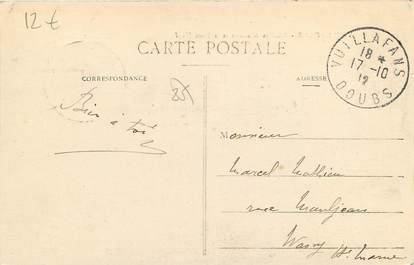 12 €
CARTE POSTALE
CORRESPONDANCE
ADRESSE
VUILLAFANS
18 *
17 -10
12
DOUBS
25
Bien à toi
Monsieur
Marcel Mathieu
rue Mauljean
Wassy
Hte Marne